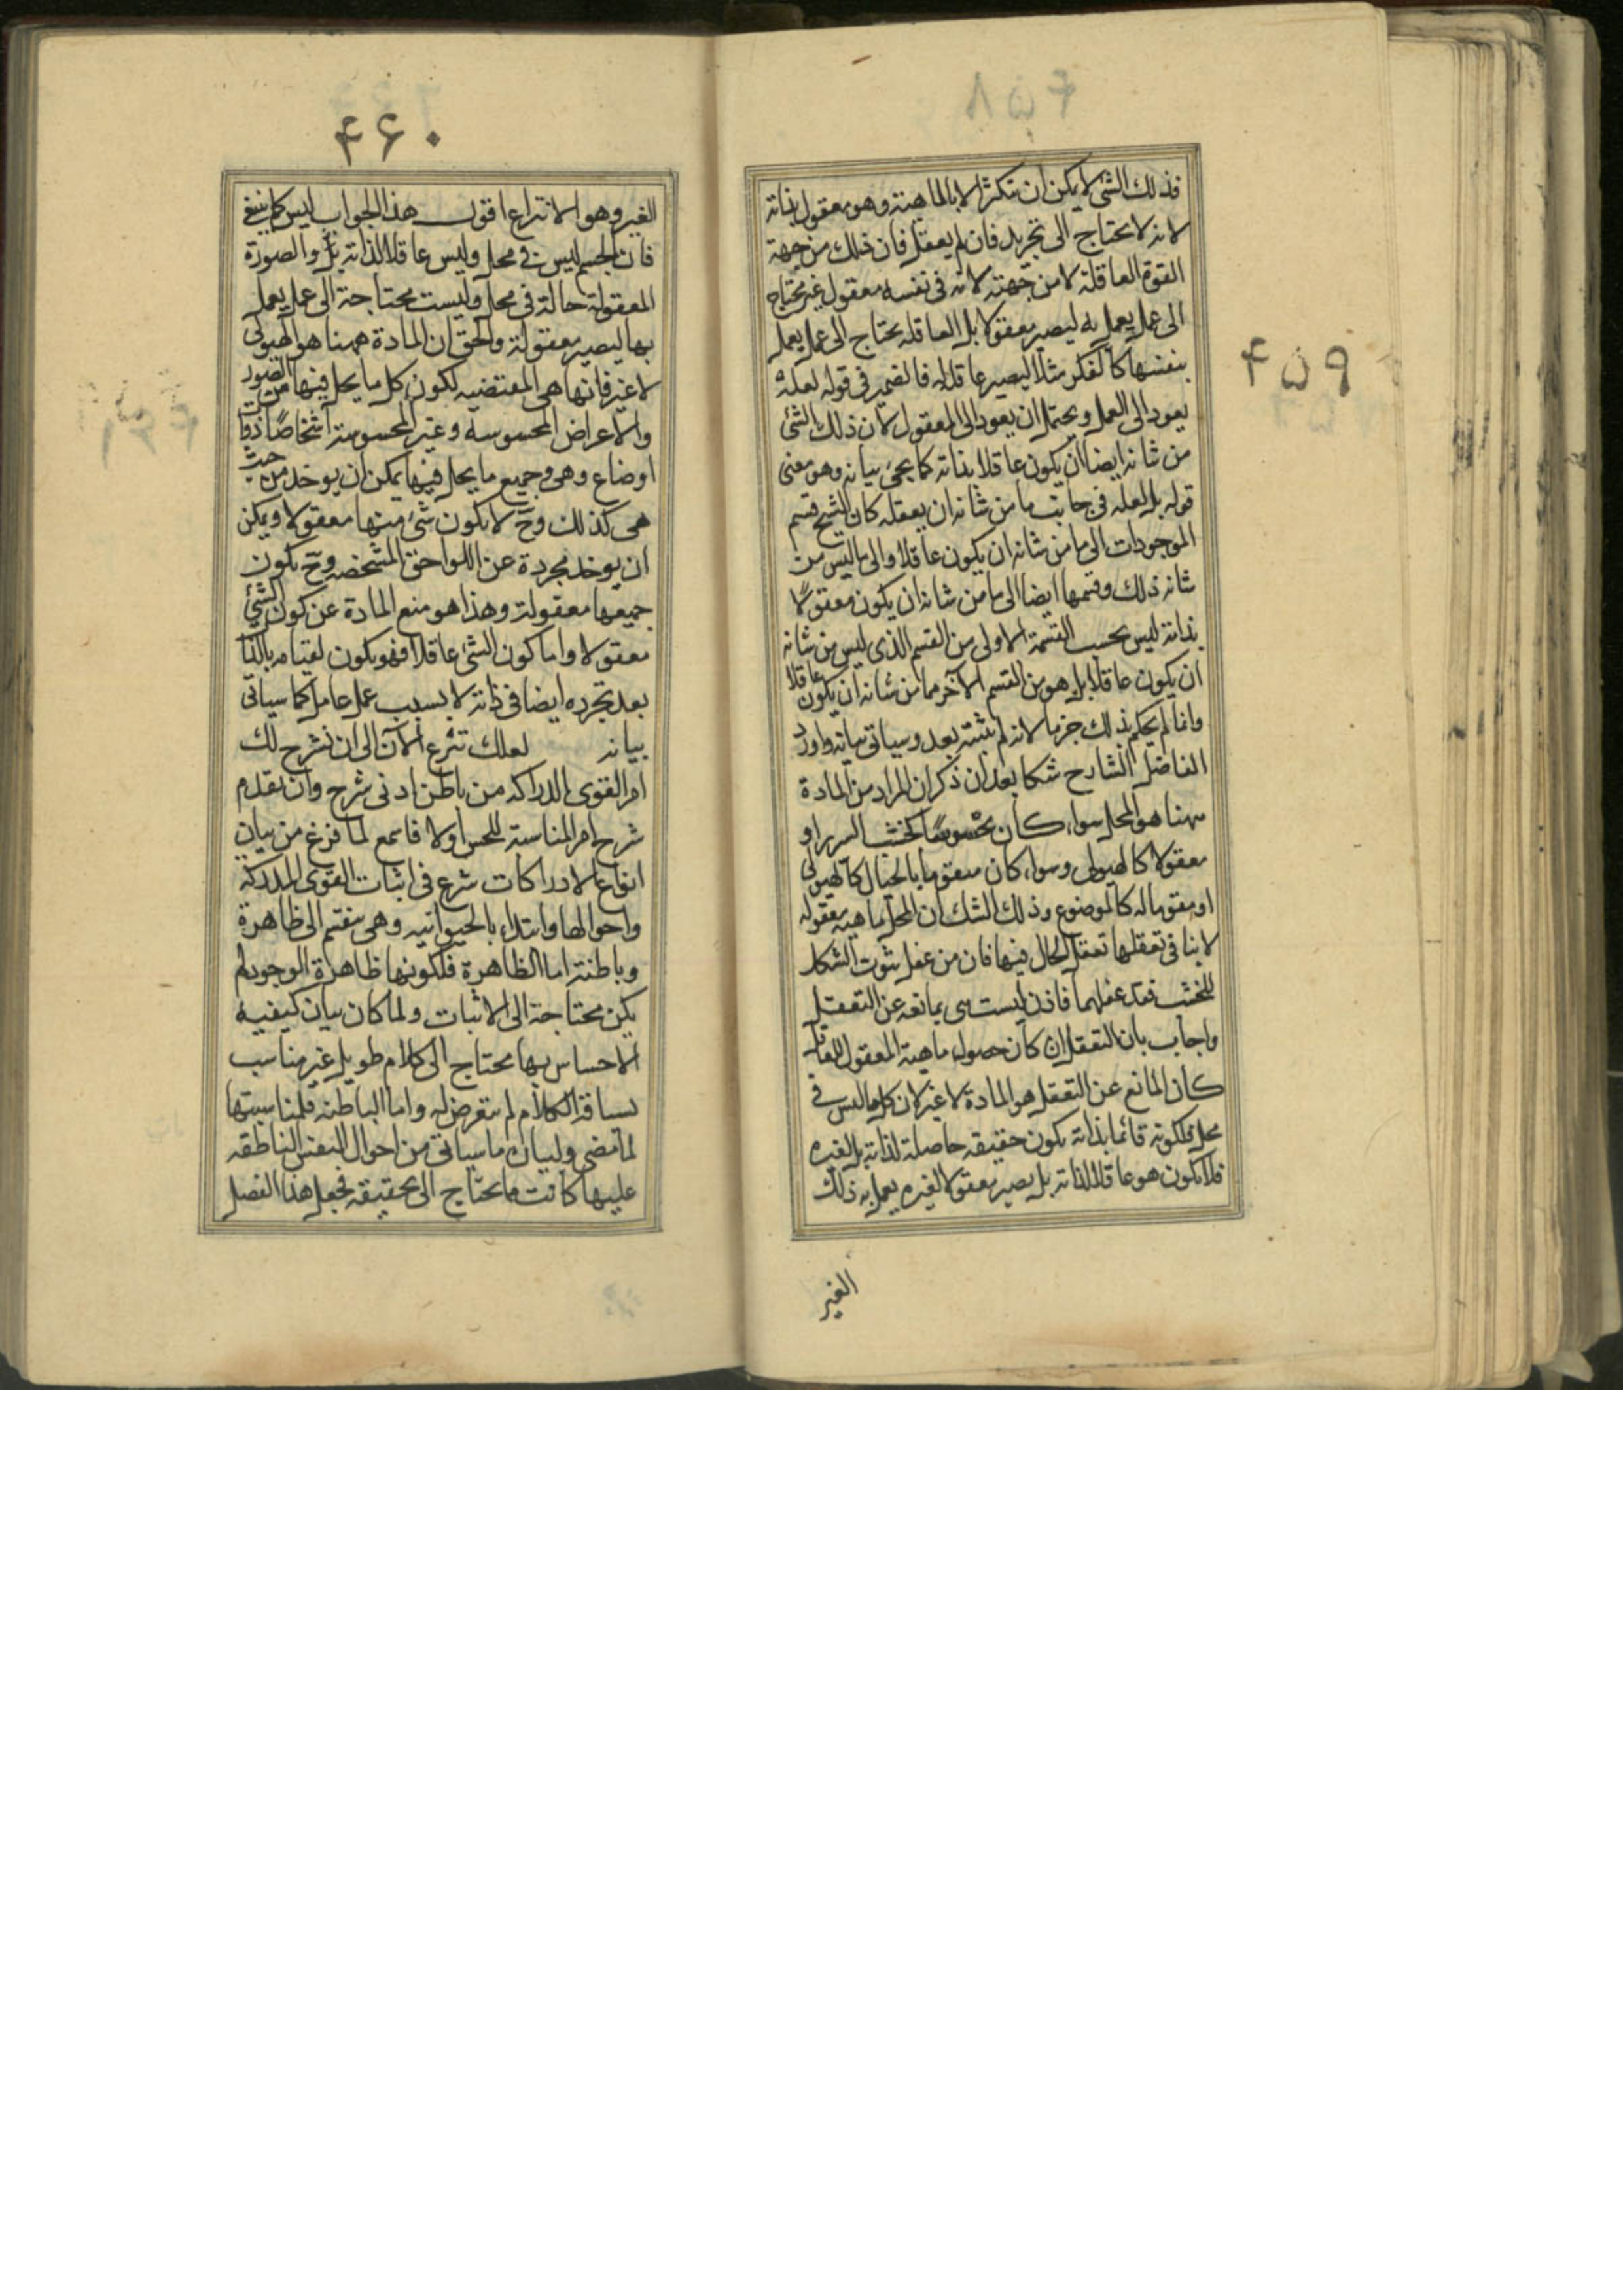 ۴۵۹
فذلك الشئ لا يمكن ان تتكثر الا بالماهية وهو معقول بذاته
لانه لا يحتاج الى تجريد فان لم يعقل فان ذلك من جهة
القوة العاقلة لا من جهته لانه فى نفسه معقول غير محتاج
الى عمل يعمل به ليصير معقولا بل العاقله يحتاج الى عمل يعمل
بنفسها كالفكر مثلا ليصير عاقلا له فالضمير فى قوله لعله
يعود الى العمل ويحتمل ان يعود الى المعقول لان ذلك الشئ
من شانه ايضا ان يكون عاقلا بذاته كما يجئ بيانه وهو معنى
قوله بل لعله فى جانب ما من شانه ان يعقله كان الشيخ قسم
الموجودات الى ما من شانه ان يكون عاقلا والى ما ليس من
شانه ذلك وقسمها ايضا الى ما من شانه ان يكون معقولا
بذاته ليس بحسب القسمة الاولى من القسم الذى ليس من شانه
ان يكون عاقلا بل هو من القسم الآخر مما من شانه ان يكون عاقلا
وانما لم يحكم بذلك جزما لانه لم يثبته بعد وسياتى بيانه واورد
الفاضل الشارح شكا بعد ان ذكر ان المراد من المادة
ههنا هو المحل سواء كان محسوسا كخشب السرير او
معقولا كالهيولى وسواء كان متقوما بالحال كالهيولى
او مقوما له كالموضوع وذلك الشك ان المحل ماهيه معقوله
لا ينافى تعقلها تعقل الحال فيها فان من عقل ثبوت الشكل
للخشب فقد عقلهما فاذن ليست هى بمانعه عن التعقل
واجاب بان التعقل ان كان حصول ماهية المعقول للعاقل
كان المانع عن التعقل هو المادة لا غير لان كل ما ليس فى
محل فلكونه قائما بذاته يكون حقيقه حاصلة لذاته بل لغيره
فلا يكون هو عاقلا لذاته بل يصير معقولا لغيره بعمل به ذلك
الغير
۴۶۰
الغير وهو الانتزاع اقول هذا الجواب ليس كما ينبغى
فان الجسم ليس فى محل وليس عاقلا لذاته بل والصورة
المعقولة حالة فى محل وليست محتاجة الى عمل يعمل
بها ليصير معقولة والحق ان المادة ههنا هو الهيولى
لا غير فانها هى المقتضيه لكون كل ما يحل فيها من الصور
والاعراض المحسوسه وغير المحسوسة اشخاصا ذوات
اوضاع وهى وجميع ما يحل فيها يمكن ان يوخذ من حيث
هى كذلك وح لا يكون شئ منها معقولا ويمكن
ان يوخذ مجردة عن اللواحق المشخصه وح يكون
جميعها معقولة وهذا هو منع المادة عن كون الشئ
معقولا واما كون الشئ عاقلا فهو يكون لقيامه بالذات
بعد تجرده ايضا فى ذاته لا بسبب عمل عامل كما سياتى
بيانه لعلك تنزع الآن الى ان نشرح لك
امر القوى الدراكه من باطن ادنى شرح وان نقدم
شرح امر المناسبة للحس اولا فاسمع لما فرغ من بيان
انواع الادراكات شرع فى اثبات القوى المدركة
واحوالها وابتداء بالحيوانيه وهى ينقسم الى ظاهرة
وباطنة اما الظاهرة فلكونها ظاهرة الوجود لم
يكن محتاجة الى الاثبات ولما كان بيان كيفية
الاحساس بها محتاج الى كلام طويل غير مناسب
لسياقة الكلام لم يتعرض له واما الباطنه فلمناسبتها
لما مضى ولبيان ما سياتى من احوال النفس الناطقه
عليها كانت مما يحتاج الى تحقيقه فجعل هذا الفصل